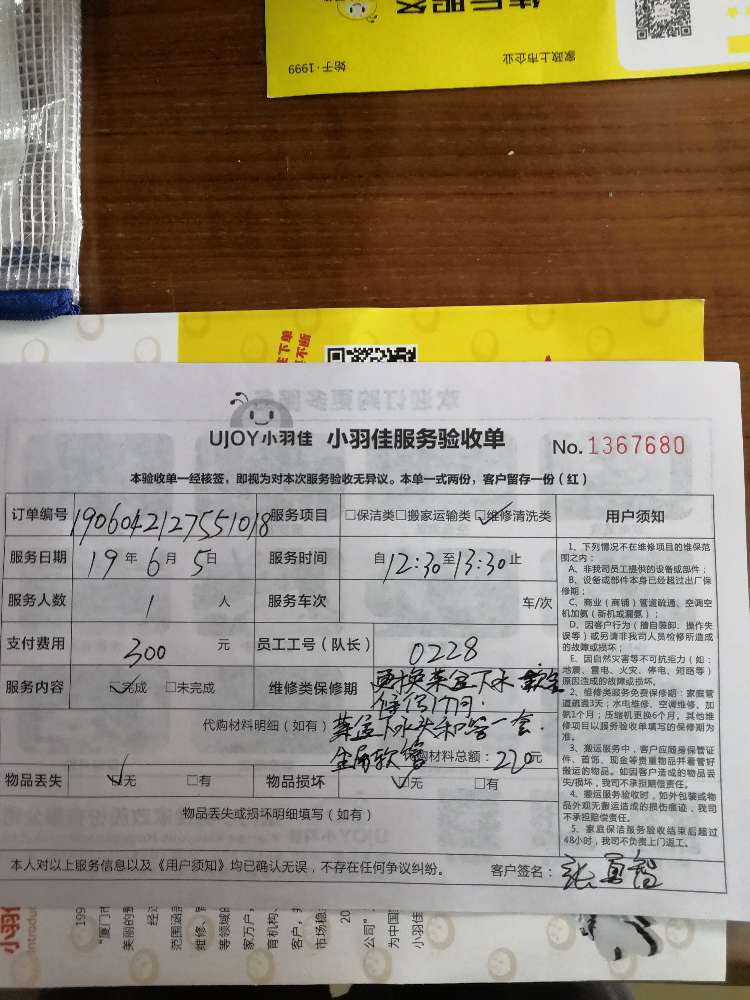 售后服务
始于·1999
家政上市企业
UJOY小羽佳 小羽佳服务验收单
No. 1367680
本验收单一经核签，即视为对本次服务验收无异议。本单一式两份，客户留存一份（红）
订单编号 1906042127551018 服务项目 □保洁类□搬家运输类☑维修清洗类
服务日期 19年6月5日 服务时间 自12:30至13:30止
服务人数 1 人 服务车次 车/次
支付费用 300 元 员工工号（队长） 0228
服务内容 ☑完成 □未完成 维修类保修期 更换菜盆下水
代购材料明细（如有） 菜盆下水头和管一套.
金属软管 代购材料总额：220元
物品丢失 ☑无 □有 物品损坏 ☑无 □有
物品丢失或损坏明细填写（如有）
本人对以上服务信息以及《用户须知》均已确认无误，不存在任何争议纠纷。 客户签名：
用户须知
1、下列情况不在维修项目的维保范
围之内：
A、非我司员工提供的设备或部件；
B、设备或部件本身已经超过出厂保
修期；
C、商业（商铺）管道疏通、空调空
机加氨（新机或漏氨）；
D、因客户行为（擅自装卸、操作失
误等）或另请非我司人员检修所造成
的故障或损坏；
E、因自然灾害等不可抗拒力（如：
地震、雷电、火灾、停电、短路等）
原因造成的故障或损坏。
2、维修类服务免费保修期：家庭管
道疏通3天；水电维修、空调维修、加
氨1个月；压缩机更换6个月，其他维
修项目以服务验收单填写的保修期为
准。
3、搬运服务中，客户应随身保管证
件、首饰、现金等贵重物品并看管好
搬运的物品。如因客户造成的物品丢
失/损坏，我司不承担赔偿责任。
4、搬运服务验收时，如外包装或物
品外观无搬运造成的损伤痕迹，我司
不承担赔偿责任。
5、家庭保洁服务验收结束后超过
48小时，我司不负责上门返工。